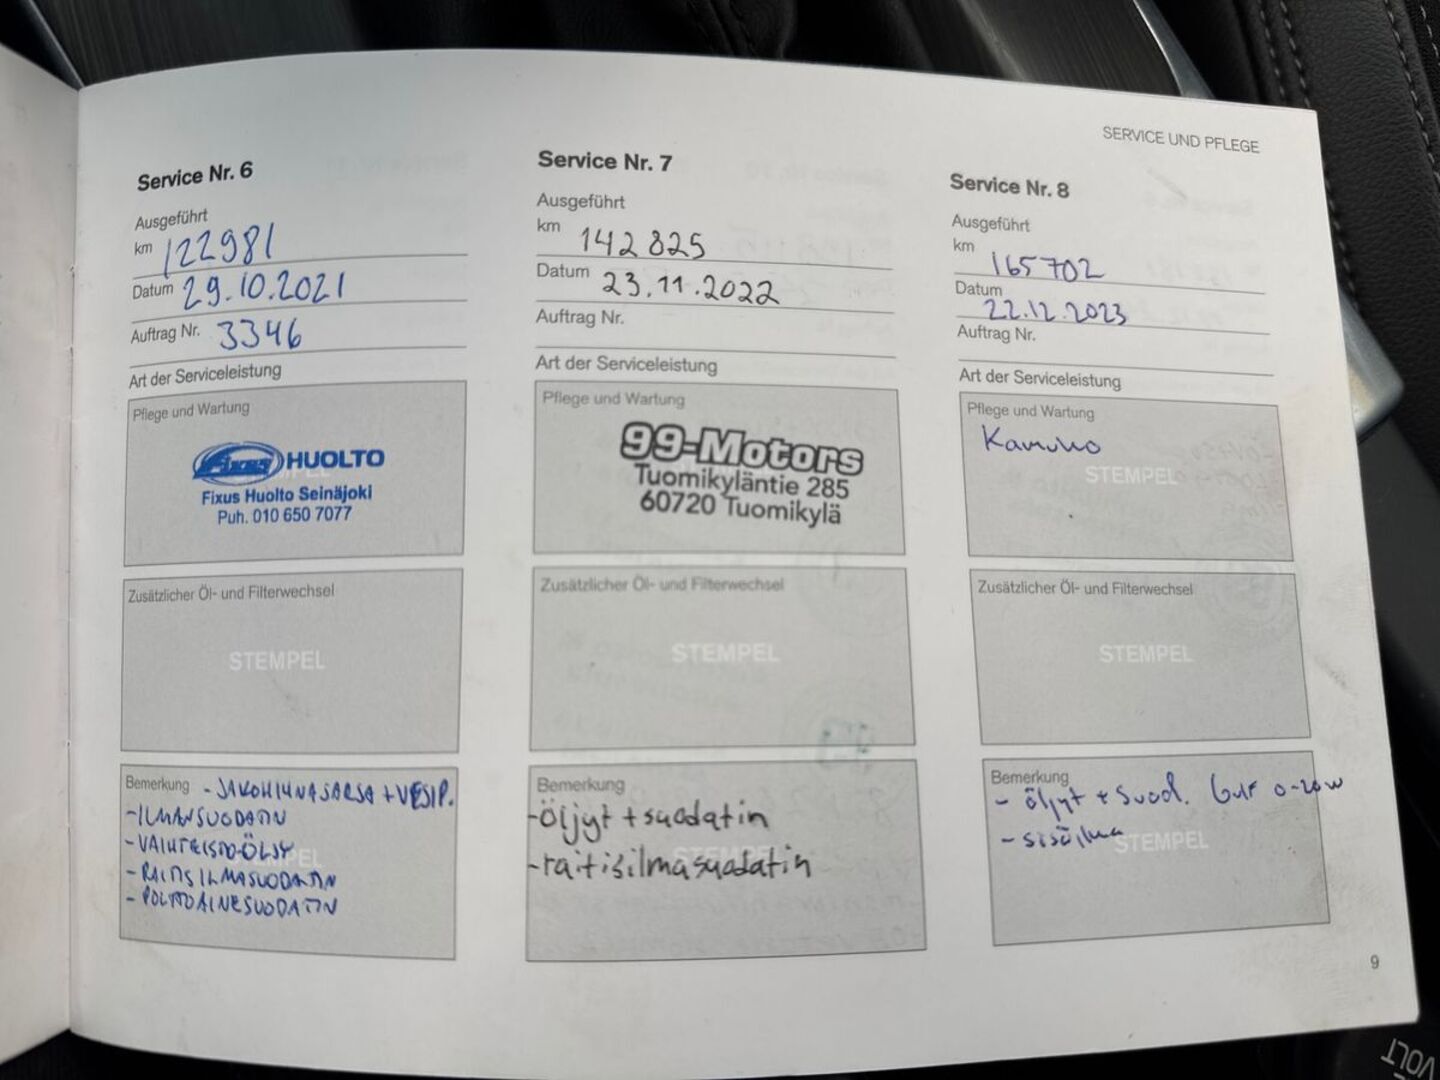 SERVICE UND PFLEGE
Service Nr. 6
Ausgeführt
km 122981
Datum 29.10.2021
Auftrag Nr. 3346
Art der Serviceleistung
Pflege und Wartung
Fixus HUOLTO
Fixus Huolto Seinäjoki
Puh. 010 650 7077
Zusätzlicher Öl- und Filterwechsel
STEMPEL
Bemerkung - JAKOHIHNASARSA + VESIP.
- ILMANSUODATIN
- VAIHTEISTOÖLJY
- RAITISILMASUODATIN
- POLTTOAINESUODATIN
Service Nr. 7
Ausgeführt
km 142825
Datum 23.11.2022
Auftrag Nr.
Art der Serviceleistung
Pflege und Wartung
99-Motors
Tuomikyläntie 285
60720 Tuomikylä
Zusätzlicher Öl- und Filterwechsel
STEMPEL
Bemerkung
- öljyt + suodatin
- raitisilmasuodatin
Service Nr. 8
Ausgeführt
km 165702
Datum 22.12.2023
Auftrag Nr.
Art der Serviceleistung
Pflege und Wartung
STEMPEL
Zusätzlicher Öl- und Filterwechsel
STEMPEL
Bemerkung
- öljyt + Suod. Gulf 0-20w
- sisäilma
STEMPEL
9
VOLT